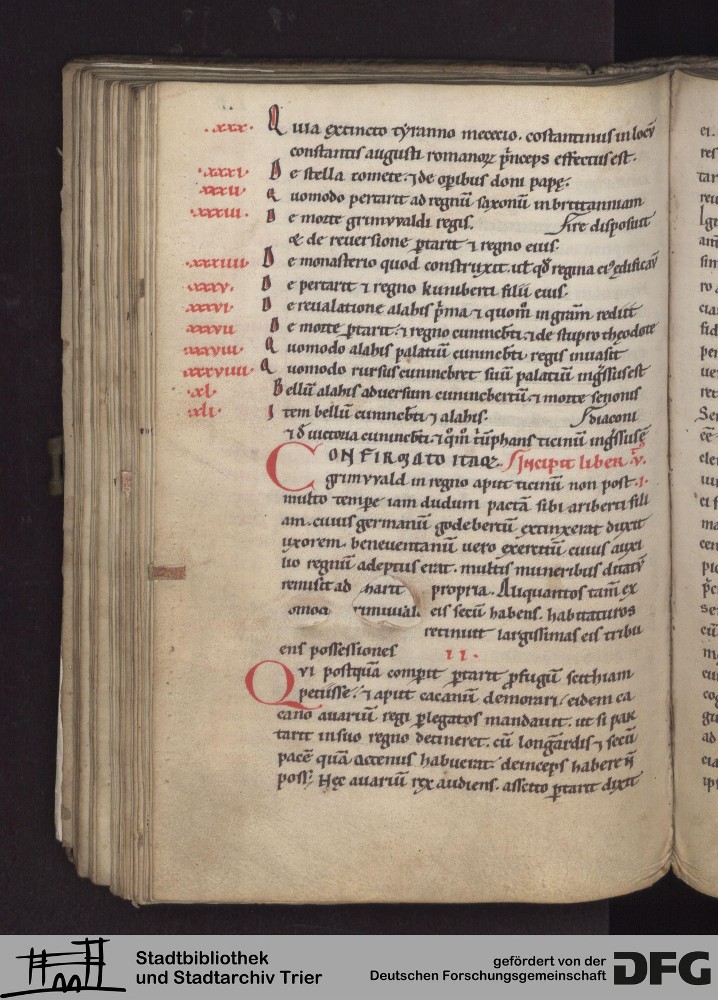 .xxx. Quia extincto tyranno mecetio. costantinus in locū
constantis augusti romanoꝝ p̄nceps effectus est.
.xxxi. De stella comete. ⁊ de opibus doni papę.
.xxxii. Quomodo pertarit ad regnū saxonū in brittanniam
.xxxiii. De morte grimvvaldi regis. Sire disposuit
& de reuersione ꝑtarit ⁊ regno eius.
.xxxiiii. De monasterio quod construxit. ut qđ regina ei᾽ ędificaū
.xxxv. De pertarit ⁊ regno kuniberti filii eius.
.xxxvi. De reualatione alahis p̄ma ⁊ quom̄ in gram̄ rediit
.xxxvii De morte ꝑtarit. ⁊ regno cunincb̄ti. ⁊ de stupro theodote
.xxxviii. Quomodo alahis palatiū cunincb̄ti regis inuasit
.xxxviiii. Quomodo rursus cunincbret suū palatiū ingr̄ssus est
.xl. Bellū alahis aduersum cunincbertū ⁊ morte zenonis
.xli. Item bellū cunincb̄ti ⁊ alahis. Sdiaconi
⁊ đ uictoria cunincb̄ti. ⁊ qm̄ tūphans ticinū ingr̄ssus ē
CONFIRMATO ITAQ. Incipit liber .v.
grimvvald in regno aput ticinū non post .i.
multo tempe iam dudum pactā sibi ariberti fili
am. cuius germanū godebertū extinxerat duxit
uxorem. beneuentanū uero exercitū cuius auxi
lio regnū adeptus erat. multis muneribus ditatū
remisit ad propria. Aliquantos tam̄ ex
eis secū habens. habitaturos
retinuit largissimas eis tribu
ens possessiones .ii.
Qvi postquā comperit ꝑtarit ꝓfugū scithiam
petiisse. ⁊ aput cacanū demorari. eidem ca
cano auariū regi ꝑ legatos mandauit. ut si par
tarit in suo regno detineret. cū longardis ⁊ secū
pacē quā actenus habuerat deinceps habere n̄
poss&. Hęc auariū rex audiens. assetto ꝑtarit dixit
Stadtbibliothek
und Stadtarchiv Trier
gefördert von der
Deutschen Forschungsgemeinschaft
DFG